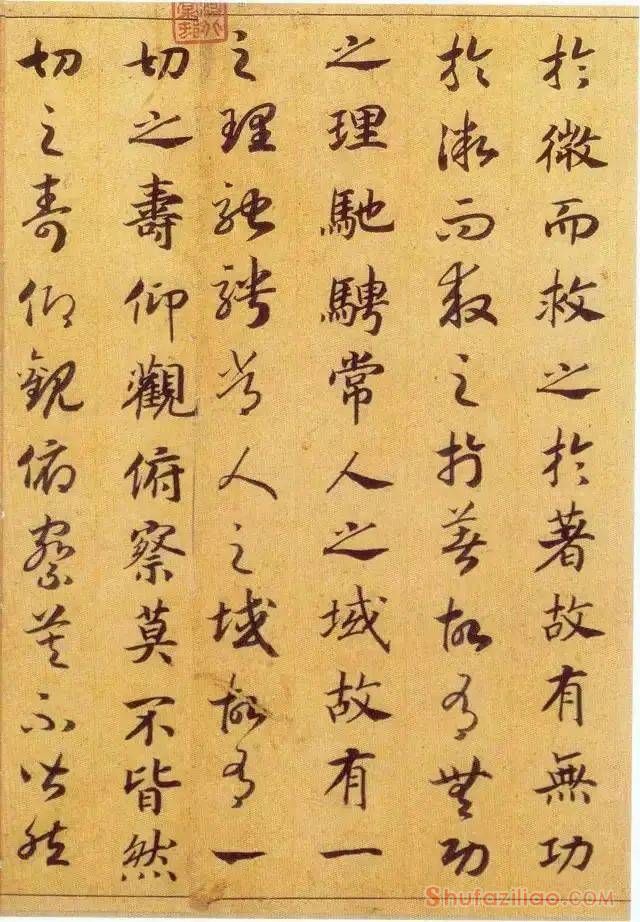 於微而救之於著故有無功
於微而救之於著故有無功
之理馳騁常人之域故有一
之理馳騁常人之域故有一
切之壽仰觀俯察莫不皆然
切之壽仰觀俯察莫不皆然
Shufaziliao.COM